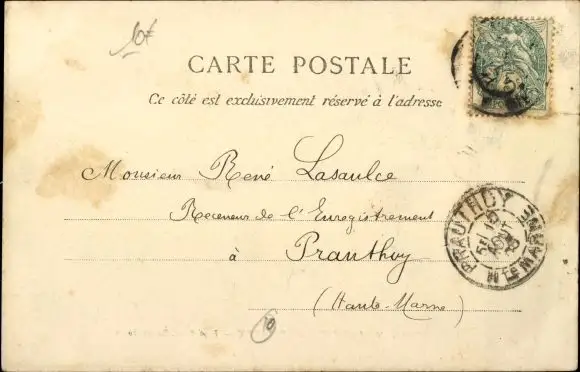 10€
CARTE POSTALE
Ce côté est exclusivement réservé à l'adresse
Monsieur René Lasaulce
Receveur de l'Enregistrement
à Prauthoy
(Haute-Marne)
PRAUTHOY
AOUT
HTE MARNE
10